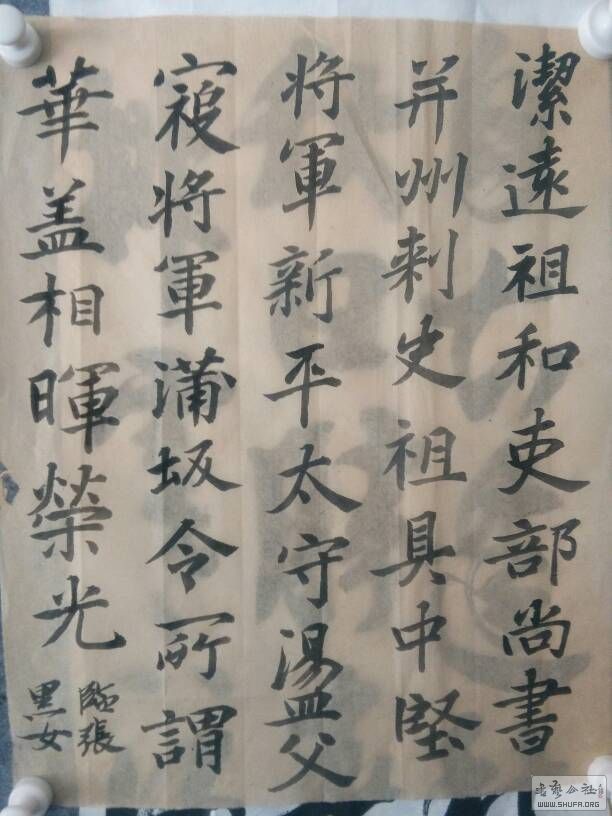 潔遠祖和吏部尚書
并州刺史祖具中堅
將軍新平太守盪父
寇將軍蒲坂令所謂
華盖相暉榮光
臨張
黑女
書藝公社
WWW.SHUFA.ORG